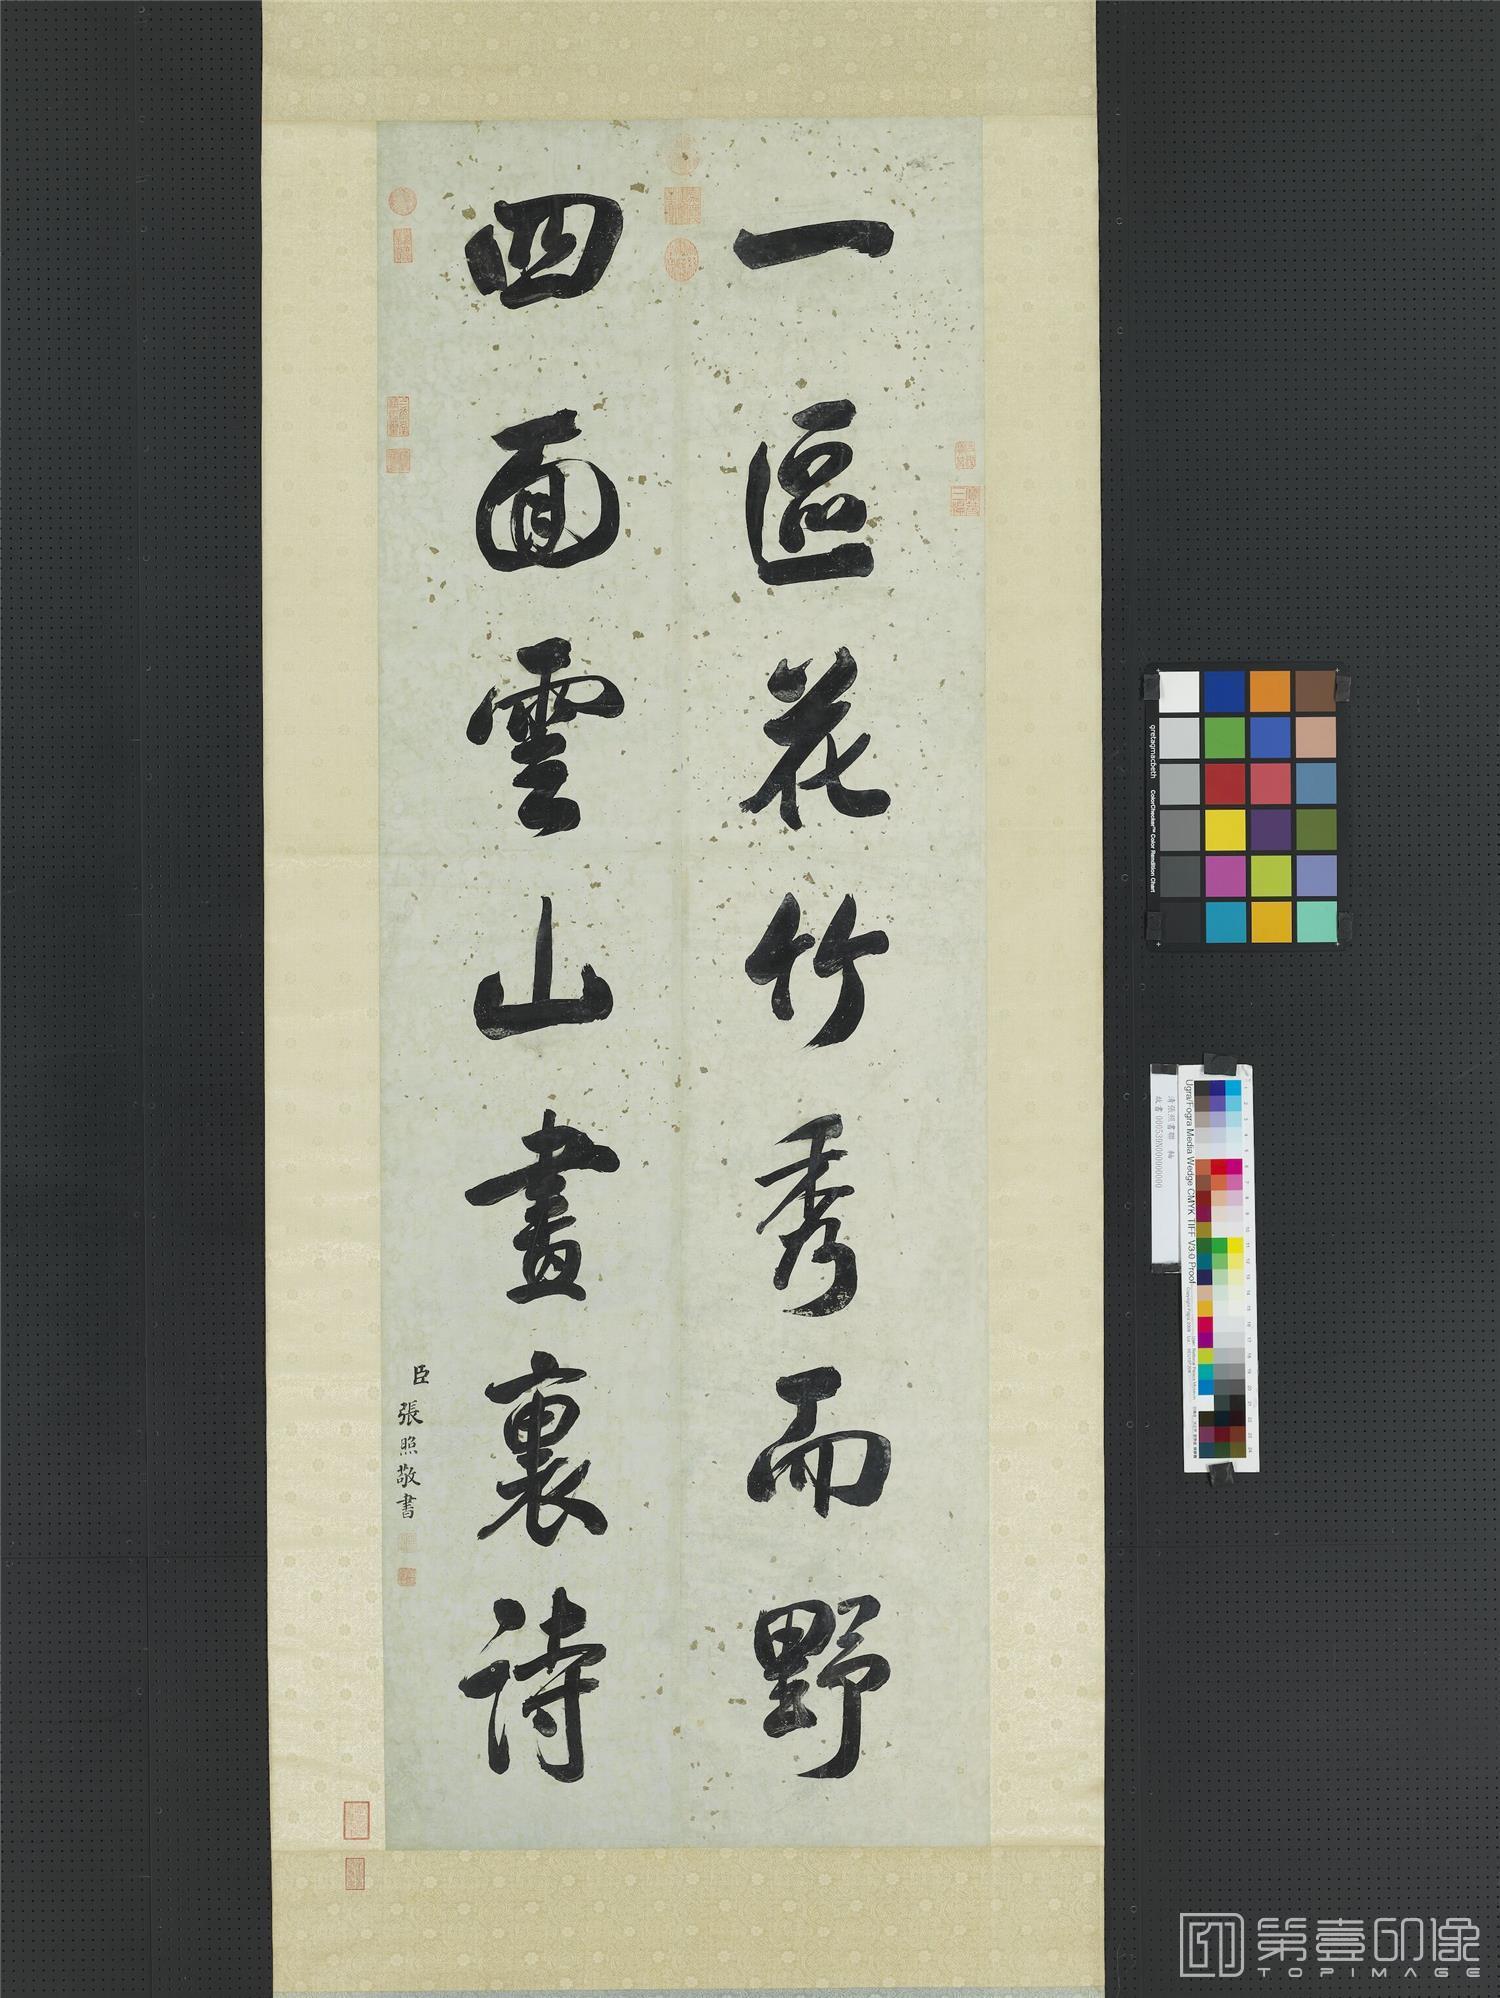 一區花竹秀而野
四面雲山畫裏詩
臣張照敬書
gretagmacbeth
ColorChecker™ Color Rendition Chart
清張照書聯 軸
故書000539N000000000
Ugra/Fogra Media Wedge CMYK TIFF V3.0 Proof
第壹印像
TOPIMAGE